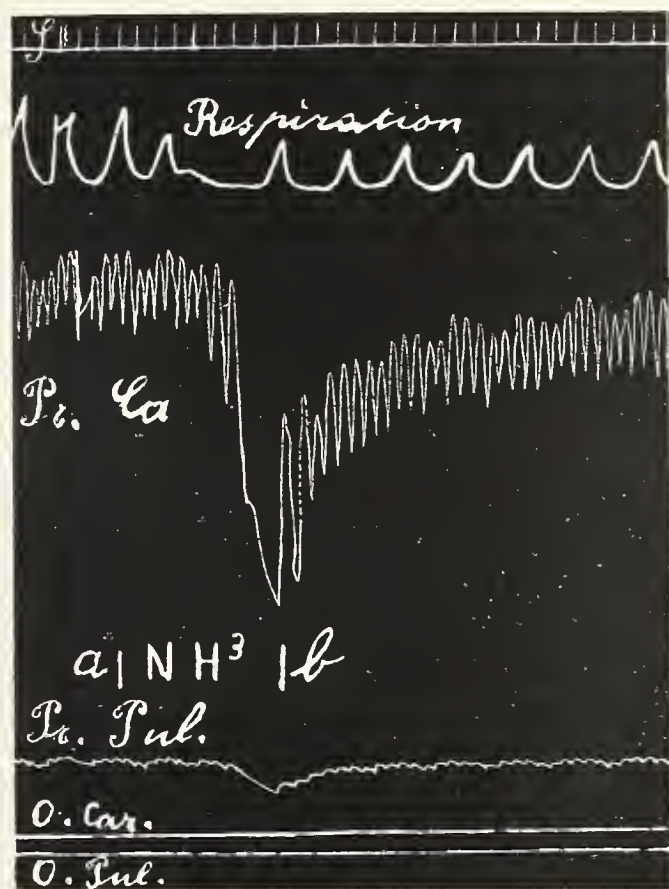 S
Respiration
Pr. Ca
a| N H³ |b
Pr. Pul.
O. Car.
O. Pul.